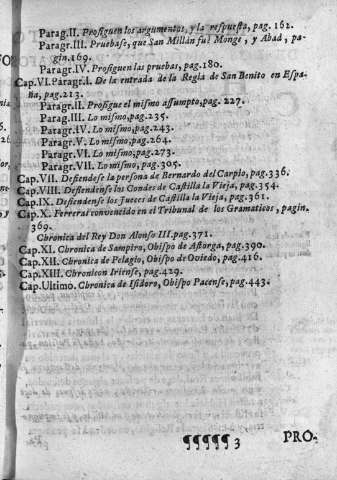 Parag.II. Prosiguen los argumentos, y la respuesta, pag. 162.
Paragr.III. Pruebase, que San Millán fuè Monge, y Abad, pa-
gin.169.
Paragr.IV. Prosiguen las pruebas, pag.180.
Cap.VI.Paragr.I. De la entrada de la Regla de San Benito en Espa-
ña, pag.213.
Paragr.II. Prosigue el mismo assumpto, pag. 227.
Parag.III. Lo mismo, pag.235.
Paragr.IV. Lo mismo, pag.243.
Paragr.V. Lo mismo, pag.264.
Paragr.VI. Lo mismo, pag.273.
Paragr.VII. Lo mismo, pag.305.
Cap.VII. Defiendese la persona de Bernardo del Carpio, pag.336.
Cap.VIII. Defiendense los Condes de Castilla la Vieja, pag.354.
Cap.IX. Defiendense los Jueces de Castilla la Vieja, pag.361.
Cap.X. Ferreras convencido en el Tribunal de los Gramaticos, pagin.
369.
Chronica del Rey Don Alonso III. pag.371.
Cap.XI. Chronica de Sampiro, Obispo de Astorga, pag.390.
Cap.XII. Chronica de Pelagio, Obispo de Oviedo, pag.416.
Cap.XIII. Chronicon Iriense, pag.429.
Cap.Ultimo. Chronica de Isidoro, Obispo Pacense, pag.443.
¶¶¶¶¶ 3 PRO-